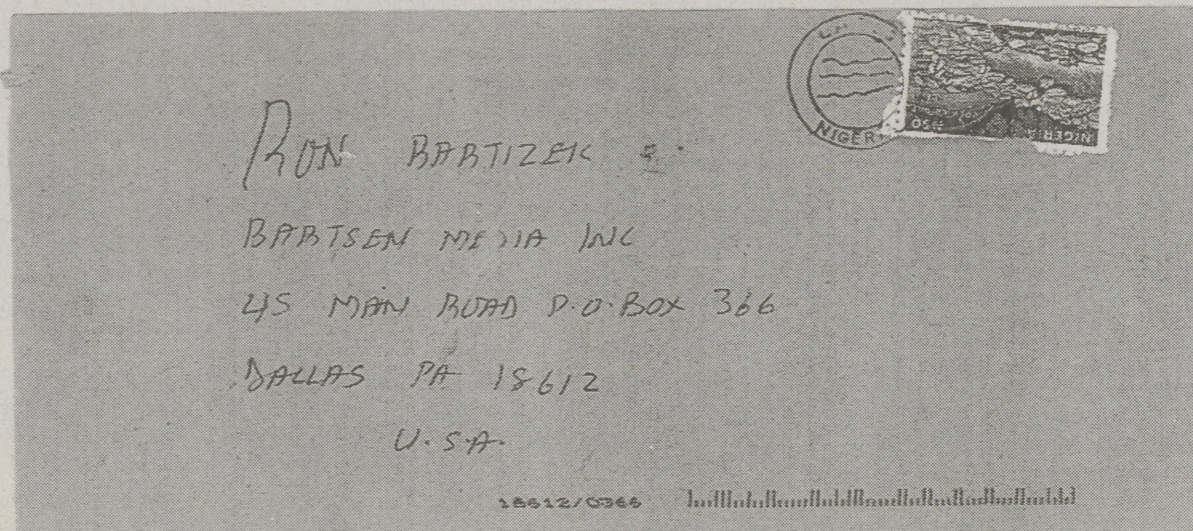 NIGERIA
₦50
RON BARTIZEK
BARTSEN MEDIA INC
45 MAIN ROAD P.O. BOX 366
DALLAS PA 18612
U.S.A.
18612/0366